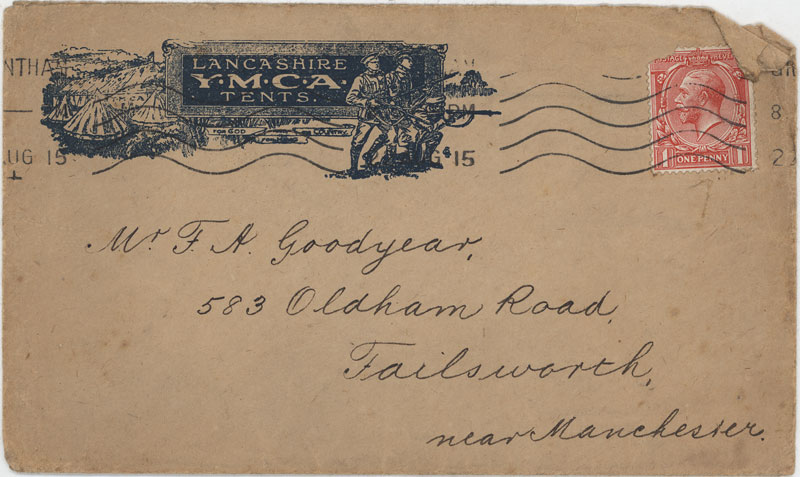 LANCASHIRE
Y.M.C.A.
TENTS.
FOR GOD
NTHA
PM
8
AUG 15
UG 15
2
POSTAGE REVENUE
1 ONE PENNY 1
Mr F. A. Goodyear,
583 Oldham Road,
Failsworth,
near Manchester.